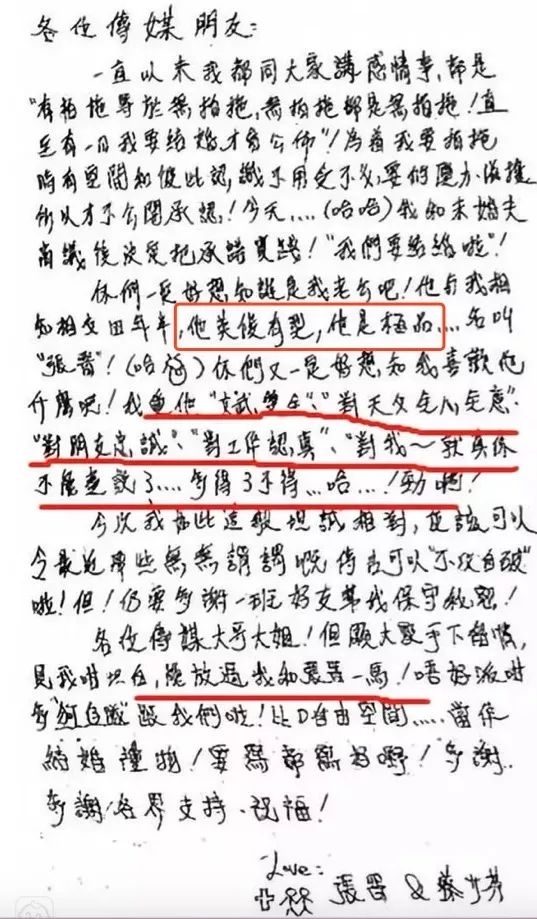 各位傳媒朋友：
一直以來我都同大家講感情事，都是
"有拍拖等於無拍拖，無拍拖都是無拍拖！直
至有一日我要結婚，才會公佈"！為着我要拍拖
時有空間和彼此認識，不用受不必要的壓力滋擾
所以才不公開承認！今天....(哈哈)我和未婚夫
商議後決定把承諾實踐！"我們要結婚啦"！
你們一定好想知誰是我老公吧！他与我相
知相交四年半，他英俊有型，他是極品....名叫
"張晉"！(哈哈)你們又一定好想知我喜歡他
什麼呢！我愛他"文武雙全"、"對天父全心全意"
"對朋友忠誠"、"對工作認真"、"對我～就真係
不能盡說了....多得3不得...哈....！勁啊！
今次我如此這般坦誠相對，應該可以
令最近那些無無謂謂嘅傳言可以"不攻自破"
啦！但！仍要多謝一班好友幫我保守秘密！
各位傳媒大哥大姐！但願大家手下留情，
見我咁坦白，能放過我和張晉一馬！唔好派咁
多"狗仔隊"跟我們啦！比D自由空間.....當係
結婚禮物！要寫都寫好嘢！多謝
多謝各界支持、祝福！
Love:
張晉 & 蔡少芬